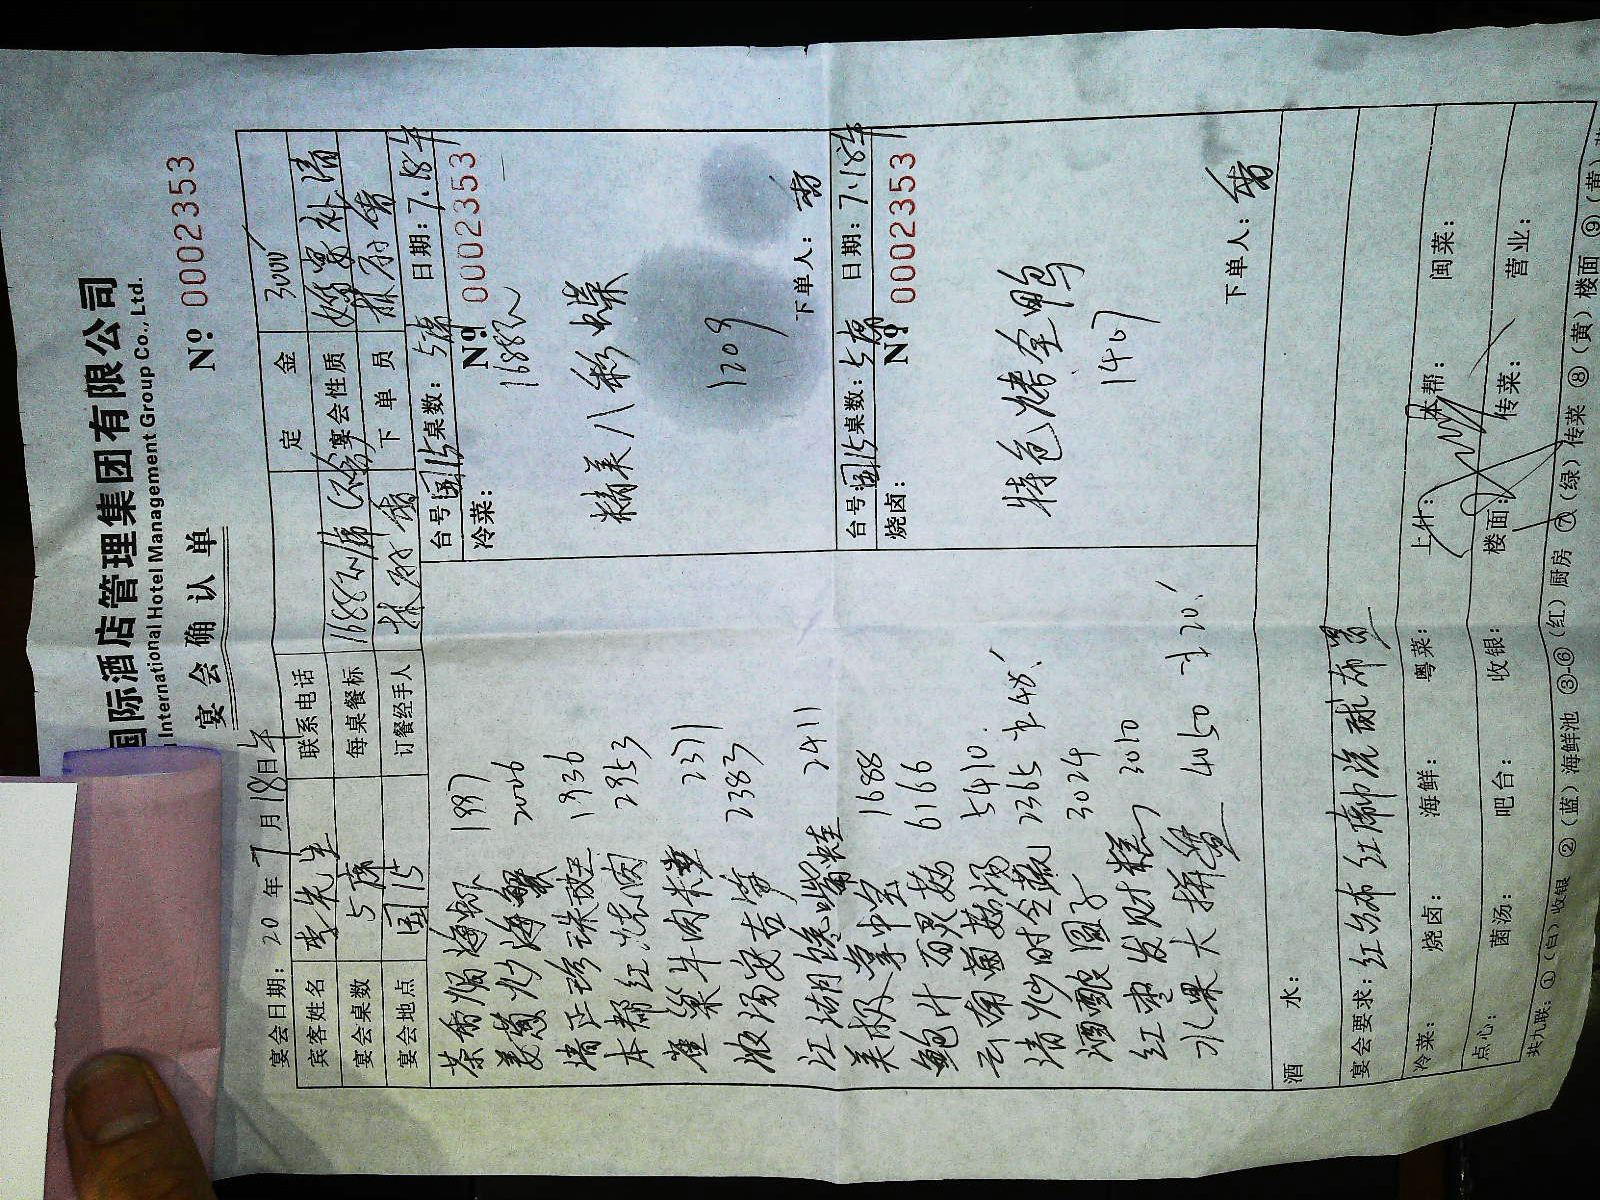 国际酒店管理集团有限公司
International Hotel Management Group Co., Ltd.
宴会确认单
Nº 0002353
宴会日期: 20 年 7 月 18 日午
定金 3000
宾客姓名 李先生 联系电话
宴会桌数 5席 每桌餐标 1688元/席 宴会性质
宴会地点 国15 订餐经手人 下单员
茶香焗海虾 1997
姜葱炒海蟹 2006
清正 珠斑 1936
本帮红烧肉 2953
雀巢牛肉粒 2371
浓汤 2383
江湖 嘴蛙 2411
美极掌中宝 1688
鲍汁百灵菇 6166
云南菌菇汤 5410
清炒时令蔬 2365
酒酿圆子 3024
红枣发财糕 3010
水果大拼盘 4050
台号: 国15 桌数: 5席 日期: 7.18午
冷菜: Nº 0002353
1688元
精美八彩蝶
1209
下单人:
台号: 国15 桌数: 5席 日期: 7.18午
烧卤: Nº 0002353
特色烤全鸭
1407
下单人:
酒水:
宴会要求: 红台布 红席
冷菜: 烧卤: 海鲜: 粤菜: 上什: 本帮: 闽菜:
点心: 菌汤: 吧台: 收银: 楼面: 传菜: 营业:
共九联: ①(白)收银 ②(蓝)海鲜池 ③-⑥(红)厨房 ⑦(绿)传菜 ⑧(黄)楼面 ⑨(黄)